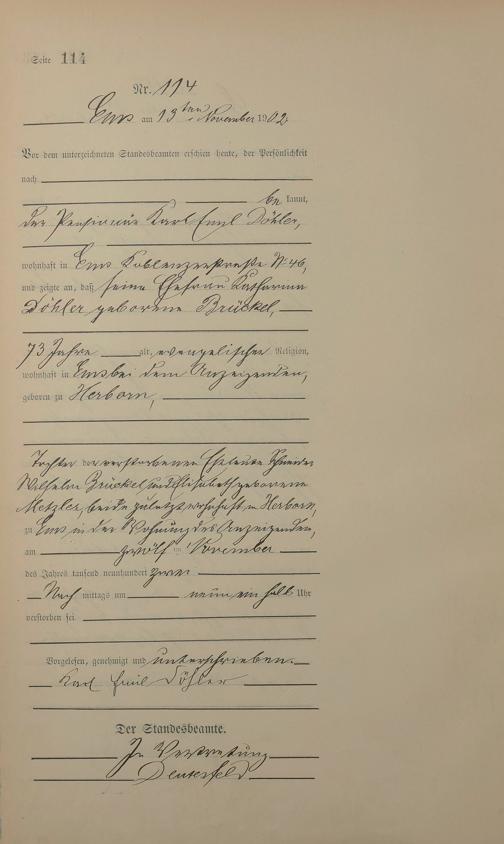 Seite 114
Nr. 114
Ems am 13ten November 1902
Vor dem unterzeichneten Standesbeamten erschien heute, der Persönlichkeit
nach
be kannt,
der Pensionär Karl Emil Döhler,
wohnhaft in Ems Koblenzerstraße № 46,
und zeigte an, daß seine Ehefrau Katharina
Döhler geborene Brückel,
73 Jahre alt, evangelischer Religion,
wohnhaft in Ems bei dem Anzeigenden,
geboren zu Herborn,
Tochter der verstorbenen Eheleute Schneider
Wilhelm Brückel und Elisabeth geborene
Metzler, beide zuletzt wohnhaft in Herborn,
zu Ems in der Wohnung des Anzeigenden,
am zwölf ten November
des Jahres tausend neunhundert zwei
Nach mittags um neun ein halb Uhr
verstorben sei
Vorgelesen, genehmigt und unterschrieben.
Karl Emil Döhler
Der Standesbeamte.
In Vertretung